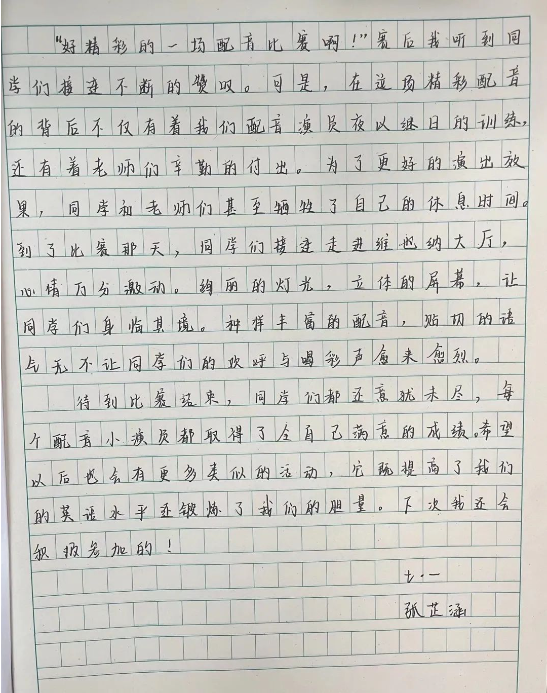 “好精彩的一场配音比赛啊！”赛后我听到同
学们接连不断的赞叹。可是，在这场精彩配音
的背后不仅有着我们配音演员夜以继日的训练，
还有着老师们辛勤的付出。为了更好的演出放
果，同学和老师们甚至牺牲了自己的休息时间。
到了比赛那天，同学们接连走进维也纳大厅，
心情万分激动。绚丽的灯光，立体的屏幕，让
同学们身临其境。种样丰富的配音，贴切的语
气无不让同学们的欢呼与喝彩声愈来愈烈。
待到比赛结束，同学们都还意犹未尽，每
个配音小演员都取得了令自己满意的成绩。希望
以后也会有更多类似的活动，它既提高了我们
的英语水平还锻炼了我们的胆量。下次我还会
积极参加的！
七·一
张芷涵